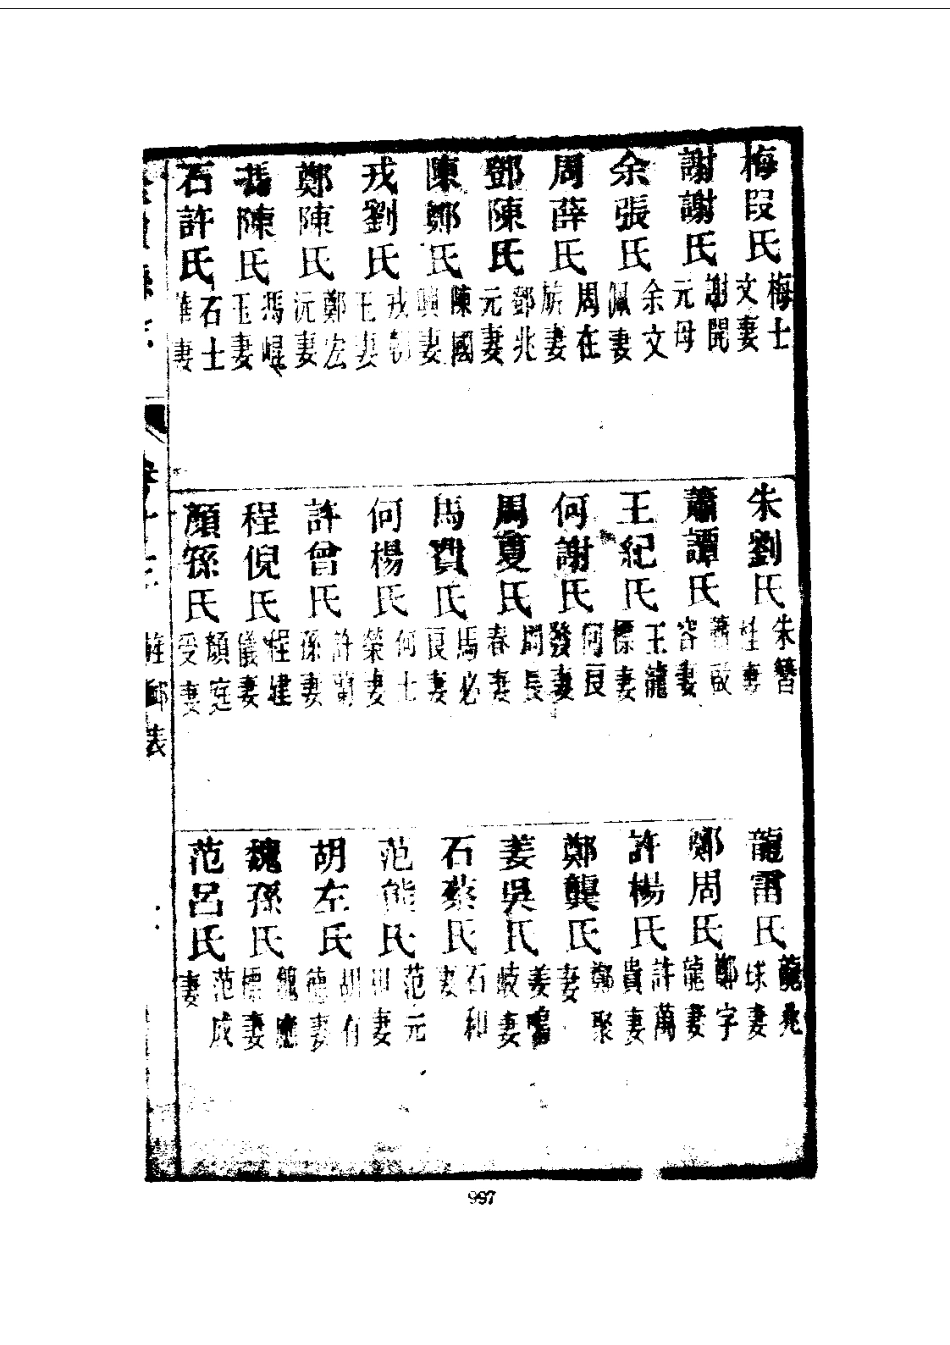 梅段氏 梅士文妻
謝謝氏 謝開元母
余張氏 余文佩妻
周薛氏 周在旂妻
鄧陳氏 鄧兆元妻
陳鄭氏 陳國興妻
戎劉氏 戎朝王妻
鄭陳氏 鄭宏沅妻
馮陳氏 馮崐玉妻
石許氏 石士華妻
朱劉氏 朱簪桂妻
蕭譚氏 蕭啟容妻
王紀氏 王龍標妻
何謝氏 何良發妻
周夏氏 周長春妻
馬費氏 馬必良妻
何楊氏 何士榮妻
許曾氏 許蘭孫妻
程倪氏 程建儀妻
顏孫氏 顏庭受妻
龍雷氏 龍堯球妻
鄭周氏 鄭字龍妻
許楊氏 許萬貴妻
鄭龔氏 鄭聚妻
姜吳氏 姜鳴岐妻
石蔡氏 石和妻
范熊氏 范元妻
胡左氏 胡有德妻
魏孫氏 魏應標妻
范呂氏 范成妻
卷十三 旌節表
997